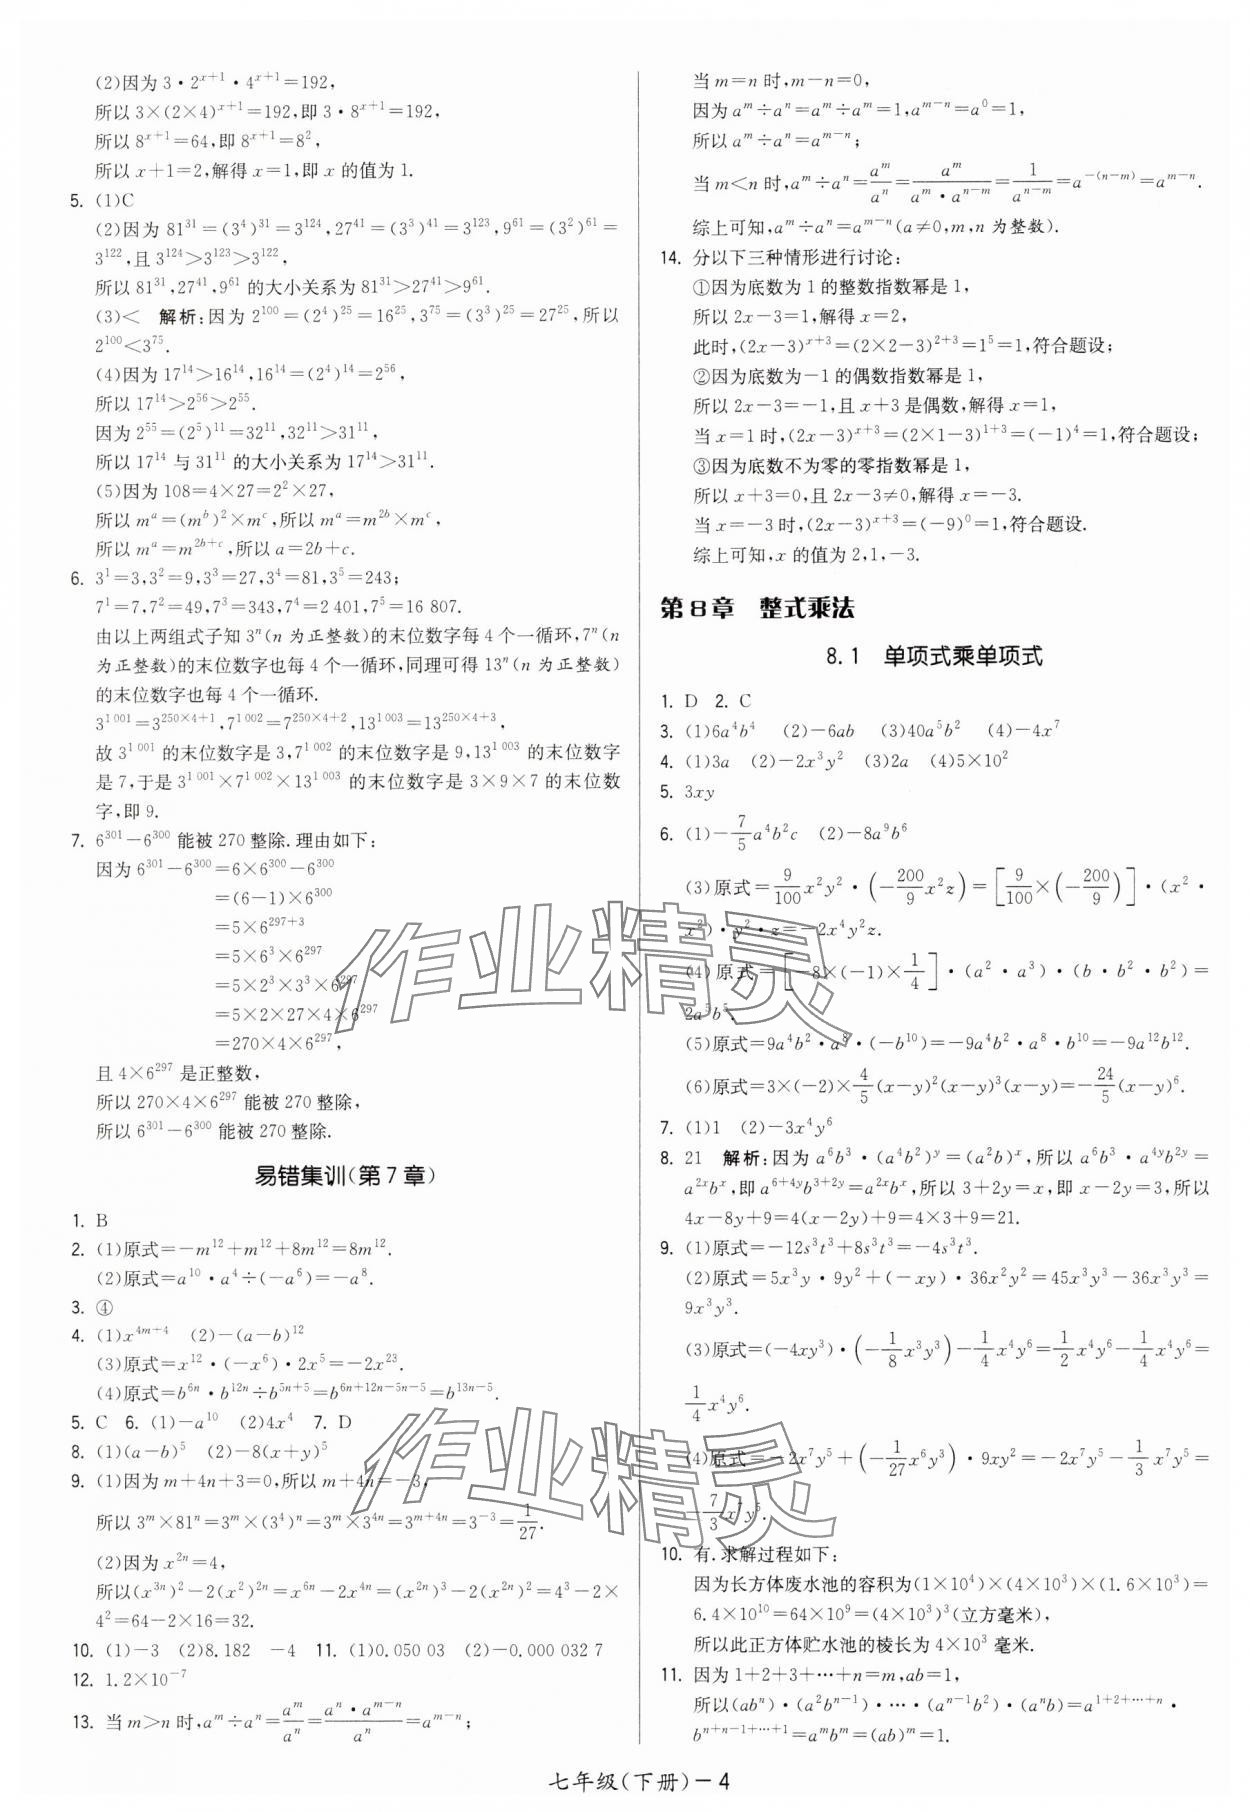 (2)因为 3·2^{x+1}·4^{x+1}=192,
所以 3×(2×4)^{x+1}=192,即 3·8^{x+1}=192,
所以 8^{x+1}=64,即 8^{x+1}=8²,
所以 x+1=2,解得 x=1,即 x 的值为 1.
5. (1)C
(2)因为 81^{31}=(3^4)^{31}=3^{124},27^{41}=(3^3)^{41}=3^{123},9^{61}=(3^2)^{61}=
3^{122},且 3^{124}>3^{123}>3^{122},
所以 81^{31},27^{41},9^{61} 的大小关系为 81^{31}>27^{41}>9^{61}.
(3)< 解析:因为 2^{100}=(2^4)^{25}=16^{25},3^{75}=(3^3)^{25}=27^{25},所以
2^{100}<3^{75}.
(4)因为 17^{14}>16^{14},16^{14}=(2^4)^{14}=2^{56},
所以 17^{14}>2^{56}>2^{55}.
因为 2^{55}=(2^5)^{11}=32^{11},32^{11}>31^{11},
所以 17^{14} 与 31^{11} 的大小关系为 17^{14}>31^{11}.
(5)因为 108=4×27=2²×27,
所以 m^a=(m^b)²×m^c,所以 m^a=m^{2b}×m^c,
所以 m^a=m^{2b+c},所以 a=2b+c.
6. 3^1=3,3^2=9,3^3=27,3^4=81,3^5=243;
7^1=7,7^2=49,7^3=343,7^4=2 401,7^5=16 807.
由以上两组式子知 3^n(n 为正整数)的末位数字每 4 个一循环,7^n(n
为正整数)的末位数字也每 4 个一循环,同理可得 13^n(n 为正整数)
的末位数字也每 4 个一循环.
3^{1 001}=3^{250×4+1},7^{1 002}=7^{250×4+2},13^{1 003}=13^{250×4+3},
故 3^{1 001} 的末位数字是 3,7^{1 002} 的末位数字是 9,13^{1 003} 的末位数字
是 7,于是 3^{1 001}×7^{1 002}×13^{1 003} 的末位数字是 3×9×7 的末位数
字,即 9.
7. 6^{301}−6^{300} 能被 270 整除.理由如下:
因为 6^{301}−6^{300}=6×6^{300}−6^{300}
=(6−1)×6^{300}
=5×6^{297+3}
=5×6^3×6^{297}
=5×2^3×3^3×6^{297}
=5×2×27×4×6^{297}
=270×4×6^{297},
且 4×6^{297} 是正整数,
所以 270×4×6^{297} 能被 270 整除,
所以 6^{301}−6^{300} 能被 270 整除.
易错集训(第 7 章)
1. B
2. (1)原式=−m^{12}+m^{12}+8m^{12}=8m^{12}.
(2)原式=a^{10}·a^4÷(−a^6)=−a^8.
3. ④
4. (1)x^{4m+4} (2)−(a−b)^{12}
(3)原式=x^{12}·(−x^6)·2x^5=−2x^{23}.
(4)原式=b^{6n}·b^{12n}÷b^{5n+5}=b^{6n+12n−5n−5}=b^{13n−5}.
5. C 6. (1)−a^{10} (2)4x^4 7. D
8. (1)(a−b)^5 (2)−8(x+y)^5
9. (1)因为 m+4n+3=0,所以 m+4n=−3,
所以 3^m×81^n=3^m×(3^4)^n=3^m×3^{4n}=3^{m+4n}=3^{−3}=1/27.
(2)因为 x^{2n}=4,
所以(x^{3n})²−2(x²)^{2n}=x^{6n}−2x^{4n}=(x^{2n})³−2(x^{2n})²=4³−2×
4²=64−2×16=32.
10. (1)−3 (2)8.182 −4 11. (1)0.050 03 (2)−0.000 032 7
12. 1.2×10^{−7}
13. 当 m>n 时,a^m÷a^n=a^m/a^n=(a^n·a^{m−n})/a^n=a^{m−n};
当 m=n 时,m−n=0,
因为 a^m÷a^n=a^m÷a^m=1,a^{m−n}=a^0=1,
所以 a^m÷a^n=a^{m−n};
当 m<n 时,a^m÷a^n=a^m/a^n=a^m/(a^m·a^{n−m})=1/a^{n−m}=a^{−(n−m)}=a^{m−n}.
综上可知,a^m÷a^n=a^{m−n}(a≠0,m,n 为整数).
14. 分以下三种情形进行讨论:
①因为底数为 1 的整数指数幂是 1,
所以 2x−3=1,解得 x=2,
此时,(2x−3)^{x+3}=(2×2−3)^{2+3}=1^5=1,符合题设;
②因为底数为−1 的偶数指数幂是 1,
所以 2x−3=−1,且 x+3 是偶数,解得 x=1,
当 x=1 时,(2x−3)^{x+3}=(2×1−3)^{1+3}=(−1)^4=1,符合题设;
③因为底数不为零的零指数幂是 1,
所以 x+3=0,且 2x−3≠0,解得 x=−3.
当 x=−3 时,(2x−3)^{x+3}=(−9)^0=1,符合题设.
综上可知,x 的值为 2,1,−3.
第 8 章 整式乘法
8.1 单项式乘单项式
1. D 2. C
3. (1)6a^4b^4 (2)−6ab (3)40a^5b^2 (4)−4x^7
4. (1)3a (2)−2x^3y^2 (3)2a (4)5×10^2
5. 3xy
6. (1)−7/5 a^4b^2c (2)−8a^9b^6
(3)原式=9/100 x²y²·(−200/9 x²z)=[9/100×(−200/9)]·(x²·
x²)·y²·z=−2x^4y²z.
(4)原式=[−8×(−1)×1/4]·(a²·a³)·(b·b²·b²)=
2a^5b^5.
(5)原式=9a^4b²·a^8·(−b^{10})=−9a^4b²·a^8·b^{10}=−9a^{12}b^{12}.
(6)原式=3×(−2)×4/5(x−y)²(x−y)³(x−y)=−24/5(x−y)^6.
7. (1)1 (2)−3x^4y^6
8. 21 解析:因为 a^6b^3·(a^4b^2)^y=(a^2b)^x,所以 a^6b^3·a^{4y}b^{2y}=
a^{2x}b^x,即 a^{6+4y}b^{3+2y}=a^{2x}b^x,所以 3+2y=x,即 x−2y=3,所以
4x−8y+9=4(x−2y)+9=4×3+9=21.
9. (1)原式=−12s³t³+8s³t³=−4s³t³.
(2)原式=5x³y·9y²+(−xy)·36x²y²=45x³y³−36x³y³=
9x³y³.
(3)原式=(−4xy³)·(−1/8 x³y³)−1/4 x^4y^6=1/2 x^4y^6−1/4 x^4y^6=
1/4 x^4y^6.
(4)原式=−2x^7y^5+(−1/27 x^6y^3)·9xy²=−2x^7y^5−1/3 x^7y^5=
−7/3 x^7y^5.
10. 有.求解过程如下:
因为长方体废水池的容积为(1×10^4)×(4×10^3)×(1.6×10^3)=
6.4×10^{10}=64×10^9=(4×10^3)^3(立方毫米),
所以此正方体贮水池的棱长为 4×10^3 毫米.
11. 因为 1+2+3+⋯+n=m,ab=1,
所以(ab^n)·(a²b^{n−1})·⋯·(a^{n−1}b²)·(a^nb)=a^{1+2+⋯+n}·
b^{n+n−1+⋯+1}=a^mb^m=(ab)^m=1.
作业精灵
作业精灵
七年级(下册)−4